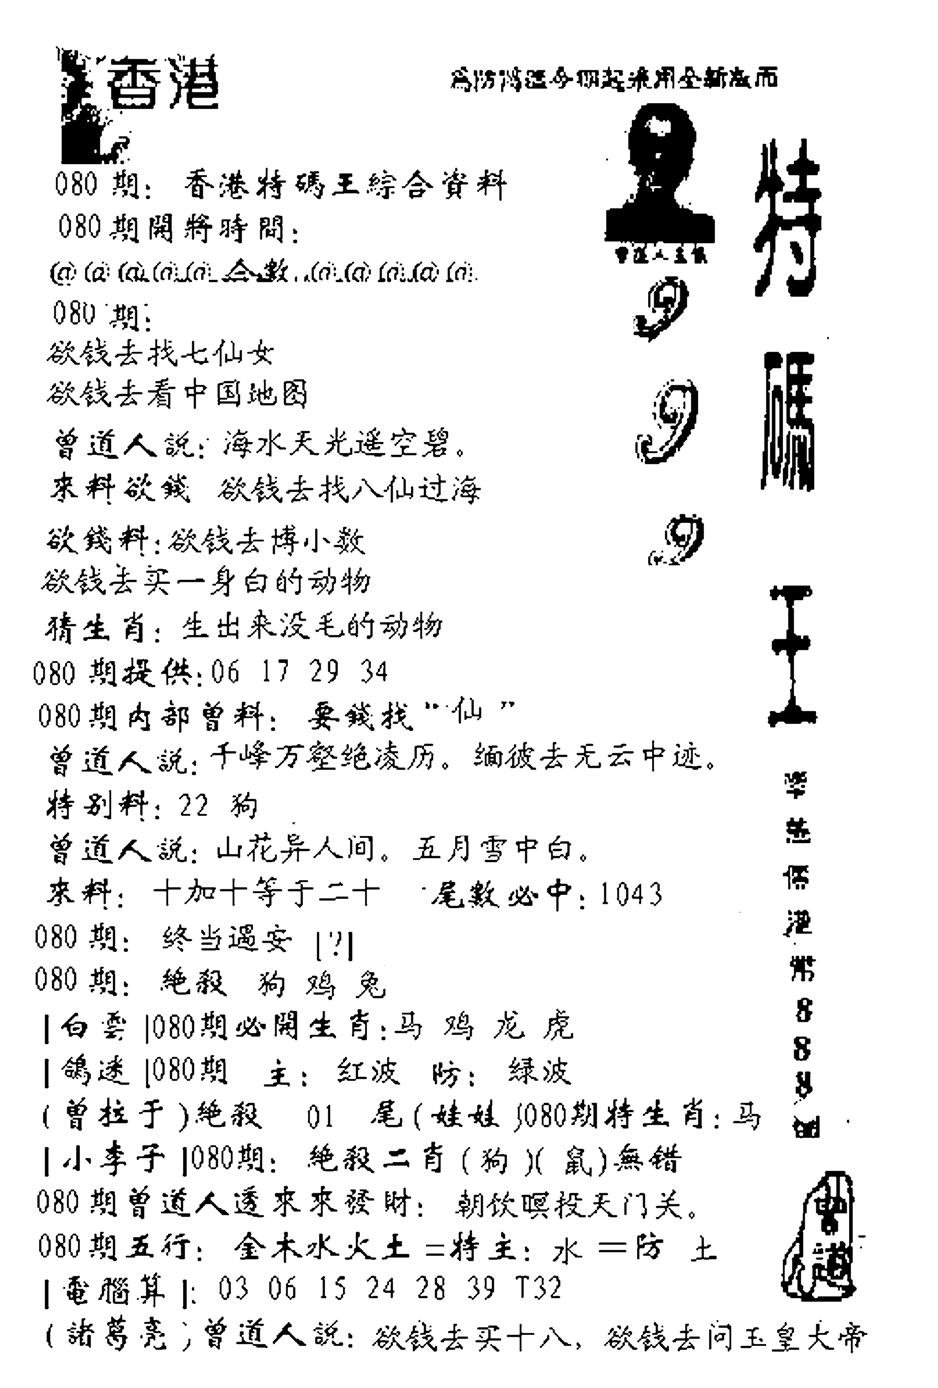 香港
為防偽造今期起采用全新版面
080 期： 香港特碼王綜合資料
080 期開將時間：
@ @ @ @ @ 合數 @ @ @ @ @
080 期：
欲钱去找七仙女
欲钱去看中国地图
曾道人説：海水天光遥空碧。
來料欲錢 欲钱去找八仙过海
欲錢料：欲钱去博小数
欲钱去买一身白的动物
猜生肖：生出来没毛的动物
080 期提供：06 17 29 34
080期内部曾料： 要錢找“仙”
曾道人説：千峰万壑绝凌历。缅彼去无云中迹。
特别料：22 狗
曾道人説：山花异人间。五月雪中白。
來料： 十加十等于二十 尾數必中：1043
080 期： 终当遇安 |?|
080 期： 絶殺 狗 鸡 兔
|白雲|080期必開生肖：马 鸡 龙 虎
|鴿迷|080期 主： 红波 防： 绿波
(曾拉于)絶殺 01 尾(娃娃)080期特生肖：马
|小李子|080期： 絶殺二肖(狗)(鼠)無错
080期曾道人透來來發財： 朝饮暝投天门关。
080期五行： 金木水火土=特主：水 =防 土
|電腦算|：03 06 15 24 28 39 T32
(諸葛亮)曾道人説：欲钱去买十八，欲钱去问玉皇大帝
曾道人主
9
9
9
特
碼
王
港
幣
8
8
8
曾道